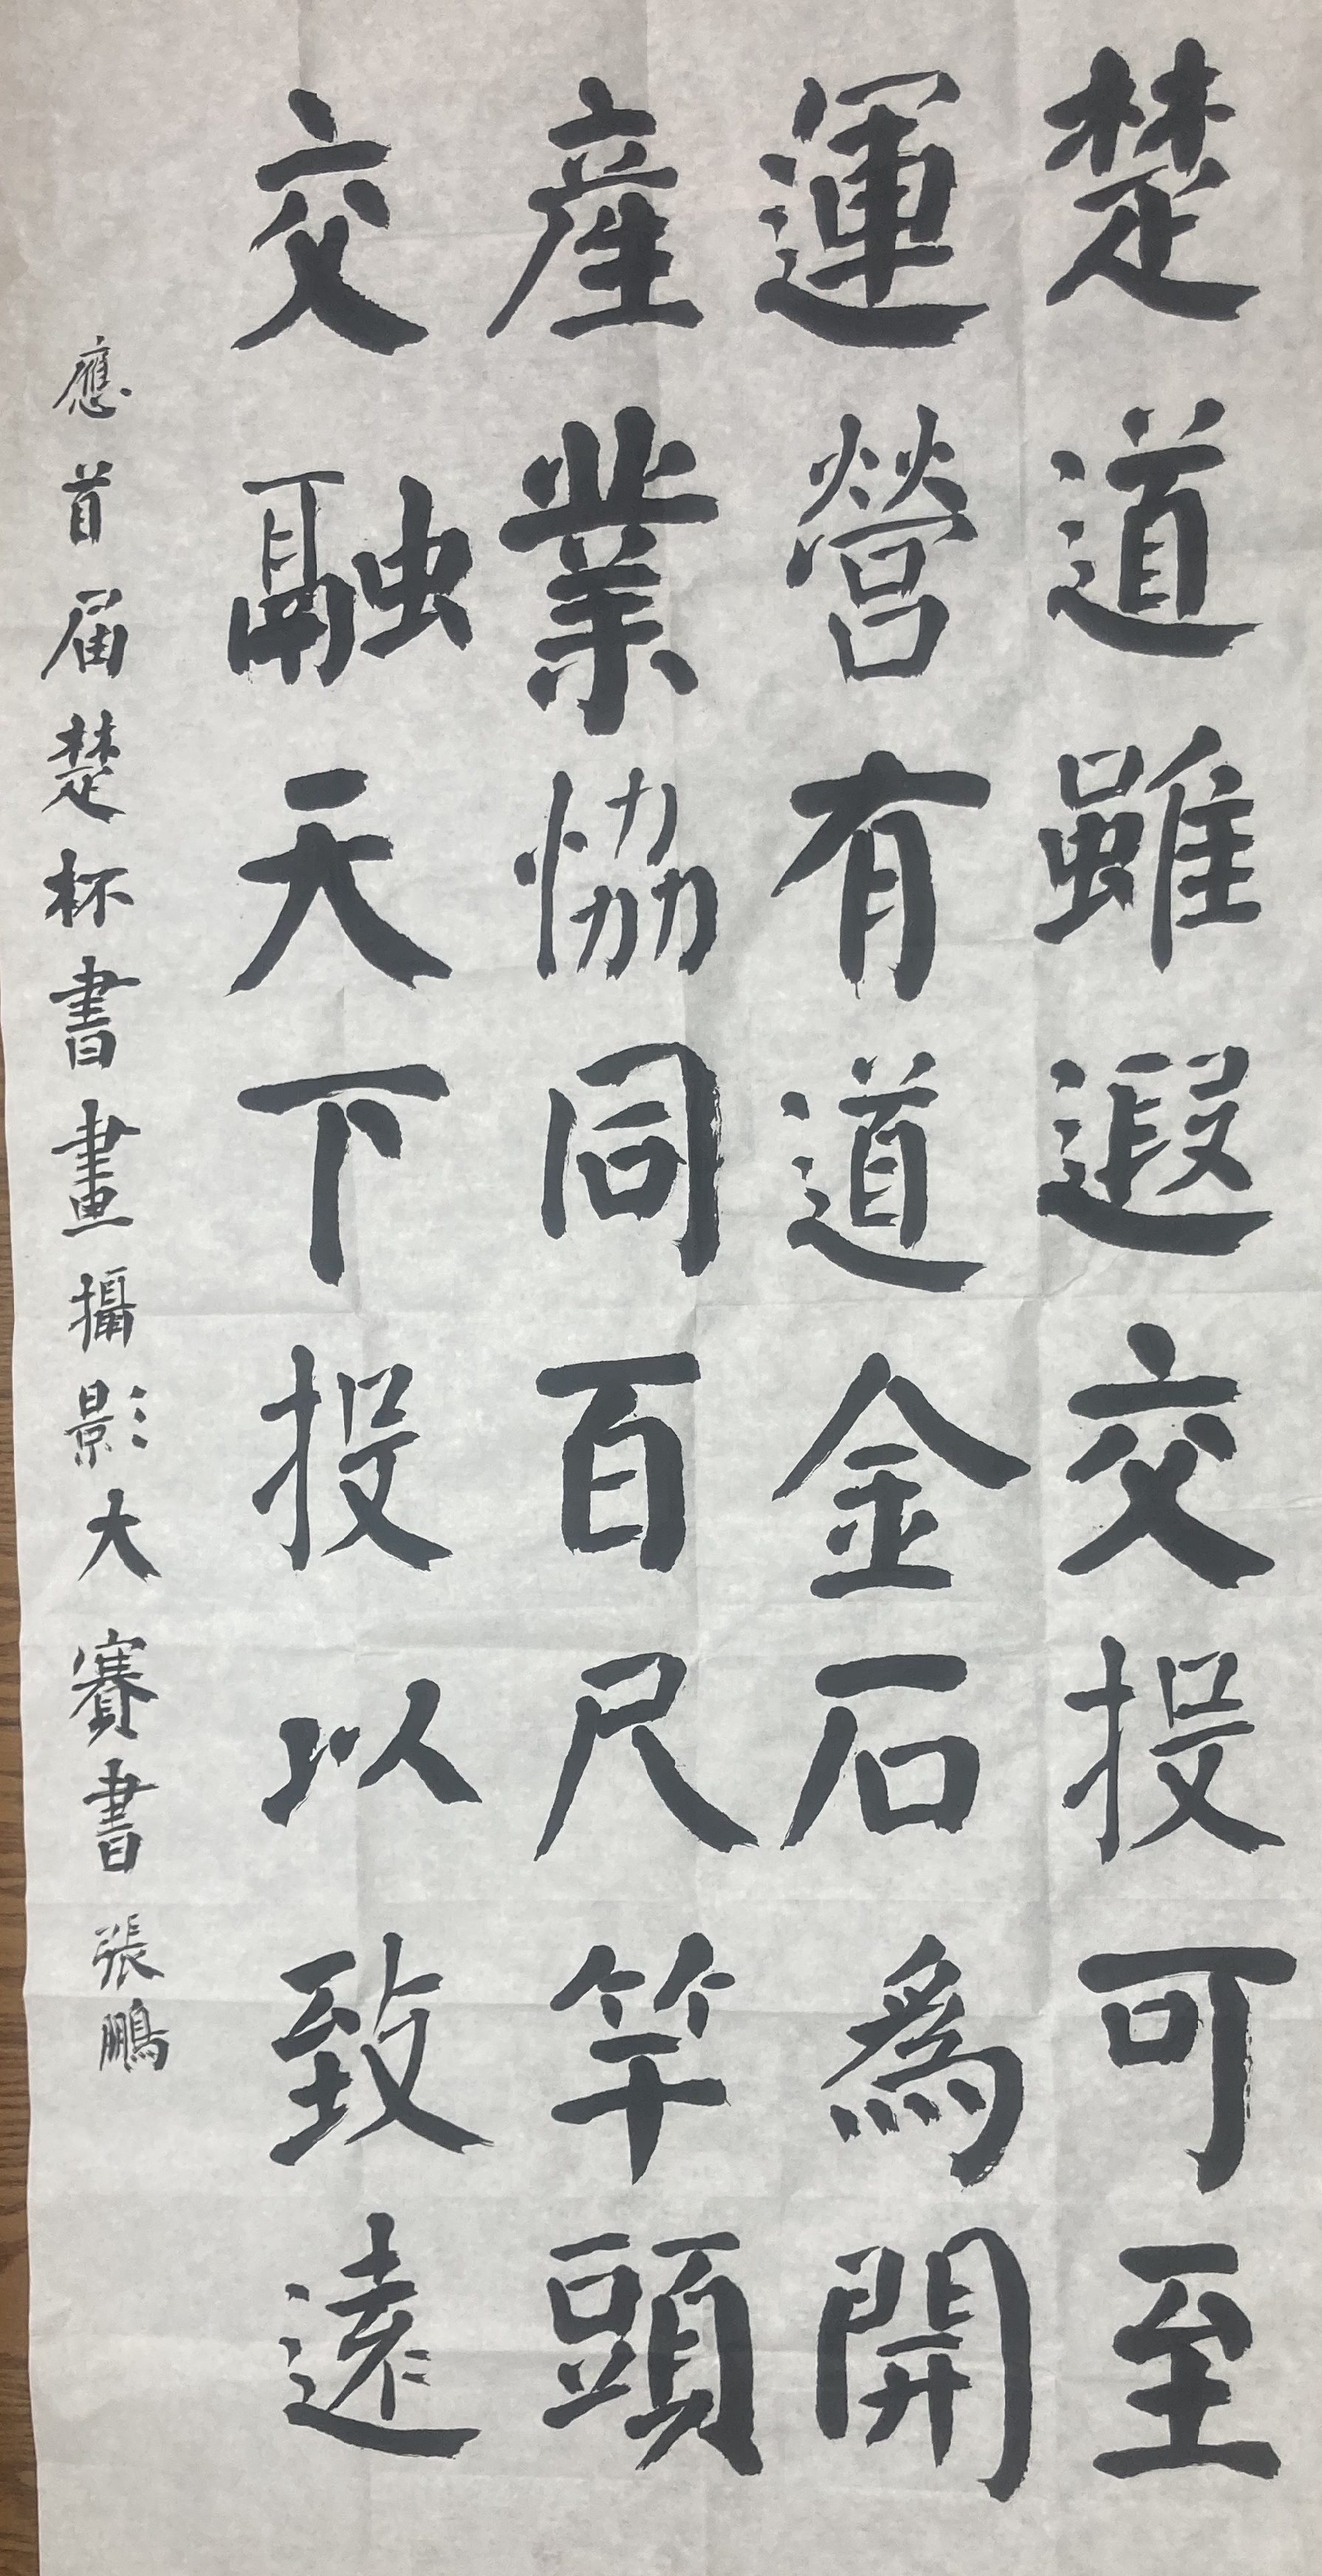 楚道雖遐交投可至
運營有道金石為開
產業恊同百尺竿頭
交融天下投以致遠
應首届楚杯書畫攝影大賽書張鵬